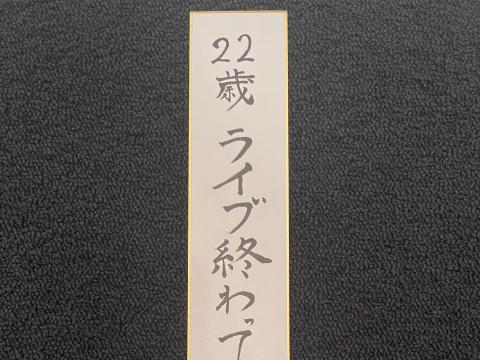 22歳 ライブ終わって